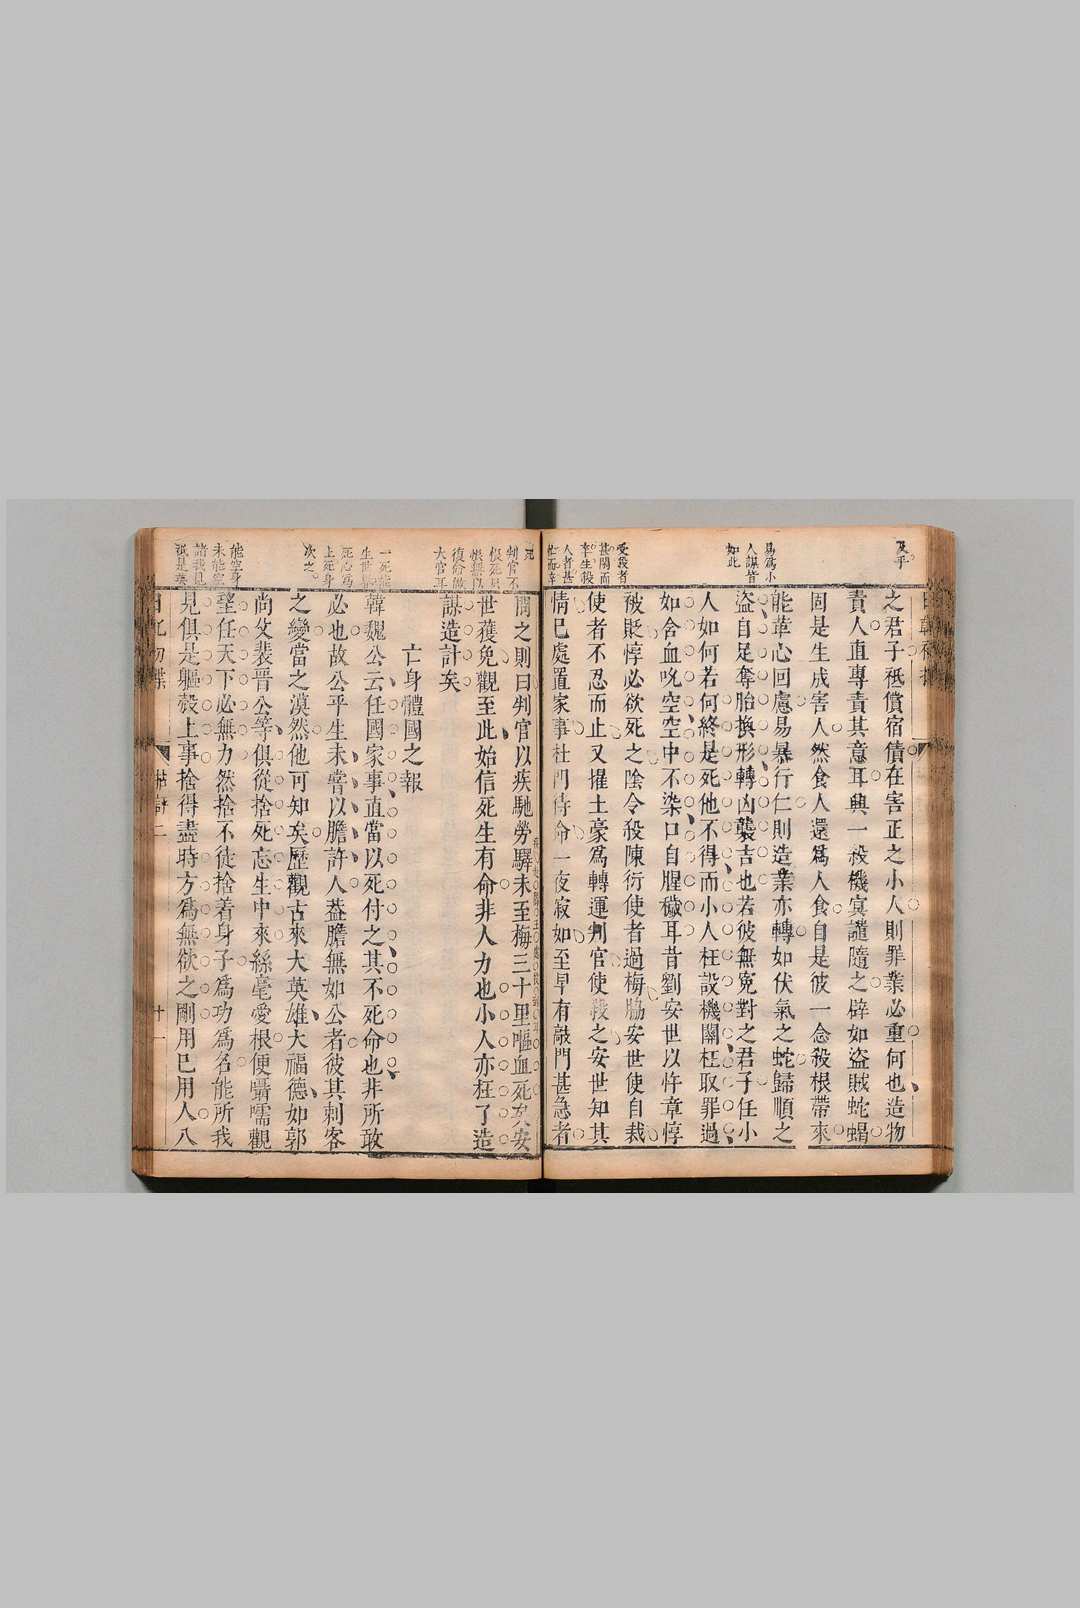 及乎
之君子秪償宿債在害正之小人則罪業必重何也造物
責人直專責其意耳興一殺機冥譴隨之辟如盜賊蛇蝎
固是生成害人然食人還爲人食自是彼一念殺根帶來
能革心回慮易暴行仁則造業亦轉如伏氣之蛇歸順之
易爲小
人謀皆
如此
盜自足奪胎換形轉凶襲吉也若彼無冤對之君子任小
人如何若何終是死他不得而小人枉設機關枉取罪過
如含血吮空空中不染口自腥穢耳昔劉安世以忤章惇
被貶惇必欲死之陰令殺陳衍使者過梅脇安世使自裁
受我者
甚閒而
幸生殺
人者甚
使者不忍而止又擢土豪爲轉運判官使殺之安世知其
情巳處置家事杜門待命一夜寂如至早有敲門甚急者
問之則曰判官以疾馳勞驛未至梅三十里嘔血死矣安
世獲免觀至此始信死生有命非人力也小人亦枉了造
謀造計矣
判官不
大官耳
亡身體國之報
韓魏公云任國家事直當以死付之其不死命也非所敢
必也故公平生未嘗以膽許人葢膽無如公者彼其刺客
一死能
生世
死心爲
上死身
次之
之變當之漠然他可知矣歷觀古來大英雄大福德如郭
尚父裴晉公等俱從捨死忘生中來絲毫愛根便囁嚅觀
望任天下必無力然捨不徒捨着身子爲功爲名能所我
見俱是軀殼上事捨得盡時方爲無欲之剛用巳用人八
能空身
未能空
諸我見
秪是英
十一